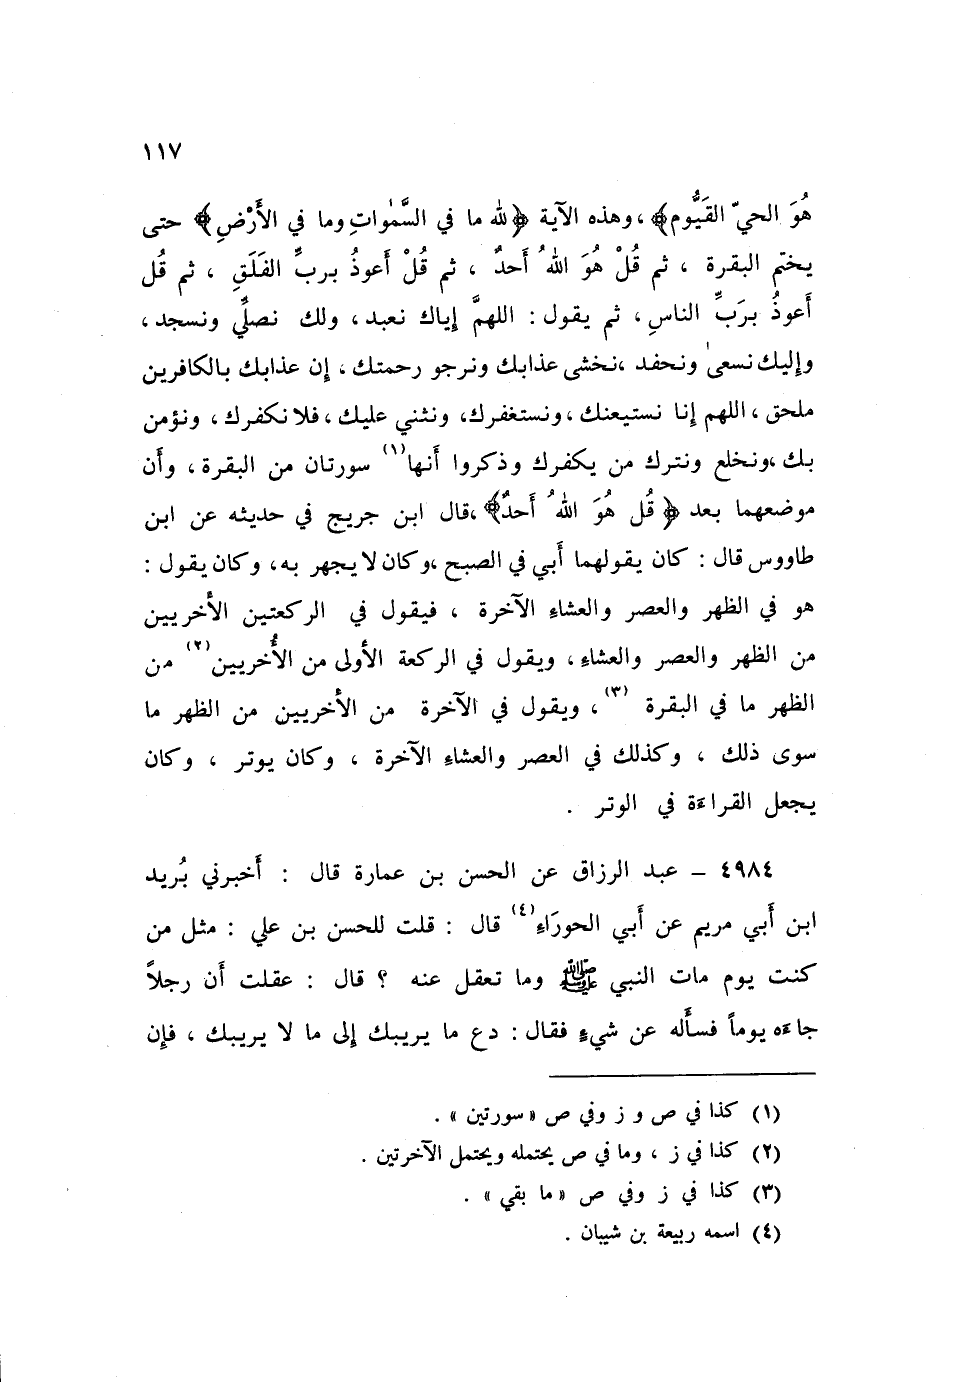 ١١٧
هُوَ الحيّ القَيُّوم﴾ ، وهذه الآية ﴿لله ما في السَّمٰواتِ وما في الأَرْضِ﴾ حتى
يختم البقرة ، ثم قُلْ هُوَ اللهُ أَحدٌ ، ثم قُلْ أَعوذُ بربِّ الفَلَقِ ، ثم قُل
أَعوذُ برَبِّ الناسِ ، ثم يقول : اللهمَّ إياك نعبد ، ولك نصلِّي ونسجد ،
وإليك نسعىٰ ونحفد ،نخشى عذابك ونرجو رحمتك ، إن عذابك بالكافرين
ملحق ، اللهم إنا نستيعنك ، ونستغفرك، ونثني عليك ، فلا نكفرك ، ونؤمن
بك ،ونخلع ونترك من يكفرك وذكروا أَنها(١) سورتان من البقرة ، وأَن
موضعهما بعد ﴿ قُل هُوَ اللهُ أَحدٌ﴾ ،قال ابن جريج في حديثه عن ابن
طاووس قال : كان يقولهما أَبي في الصبح ،وكان لا يجهر به ، وكان يقول :
هو في الظهر والعصر والعشاء الآخرة ، فيقول في الركعتين الأُخريين
من الظهر والعصر والعشاء ، ويقول في الركعة الأولى من الأُخريين(٢) من
الظهر ما في البقرة (٣) ، ويقول في الآخرة من الأخريين من الظهر ما
سوى ذلك ، وكذلك في العصر والعشاء الآخرة ، وكان يوتر ، وكان
يجعل القراءة في الوتر .
٤٩٨٤ – عبد الرزاق عن الحسن بن عمارة قال : أَخبرني بُريد
ابن أَبي مريم عن أَبي الحورَاء(٤) قال : قلت للحسن بن علي : مثل من
كنت يوم مات النبي ﷺ وما تعقل عنه ؟ قال : عقلت أَن رجلاً
جاءه يوماً فسأَله عن شيءٍ فقال : دع ما يريبك إلى ما لا يريبك ، فإن
(١) كذا في ص و ز وفي ص « سورتين » .
(٢) كذا في ز ، وما في ص يحتمله ويحتمل الآخرتين .
(٣) كذا في ز وفي ص « ما بقي » .
(٤) اسمه ربيعة بن شيبان .